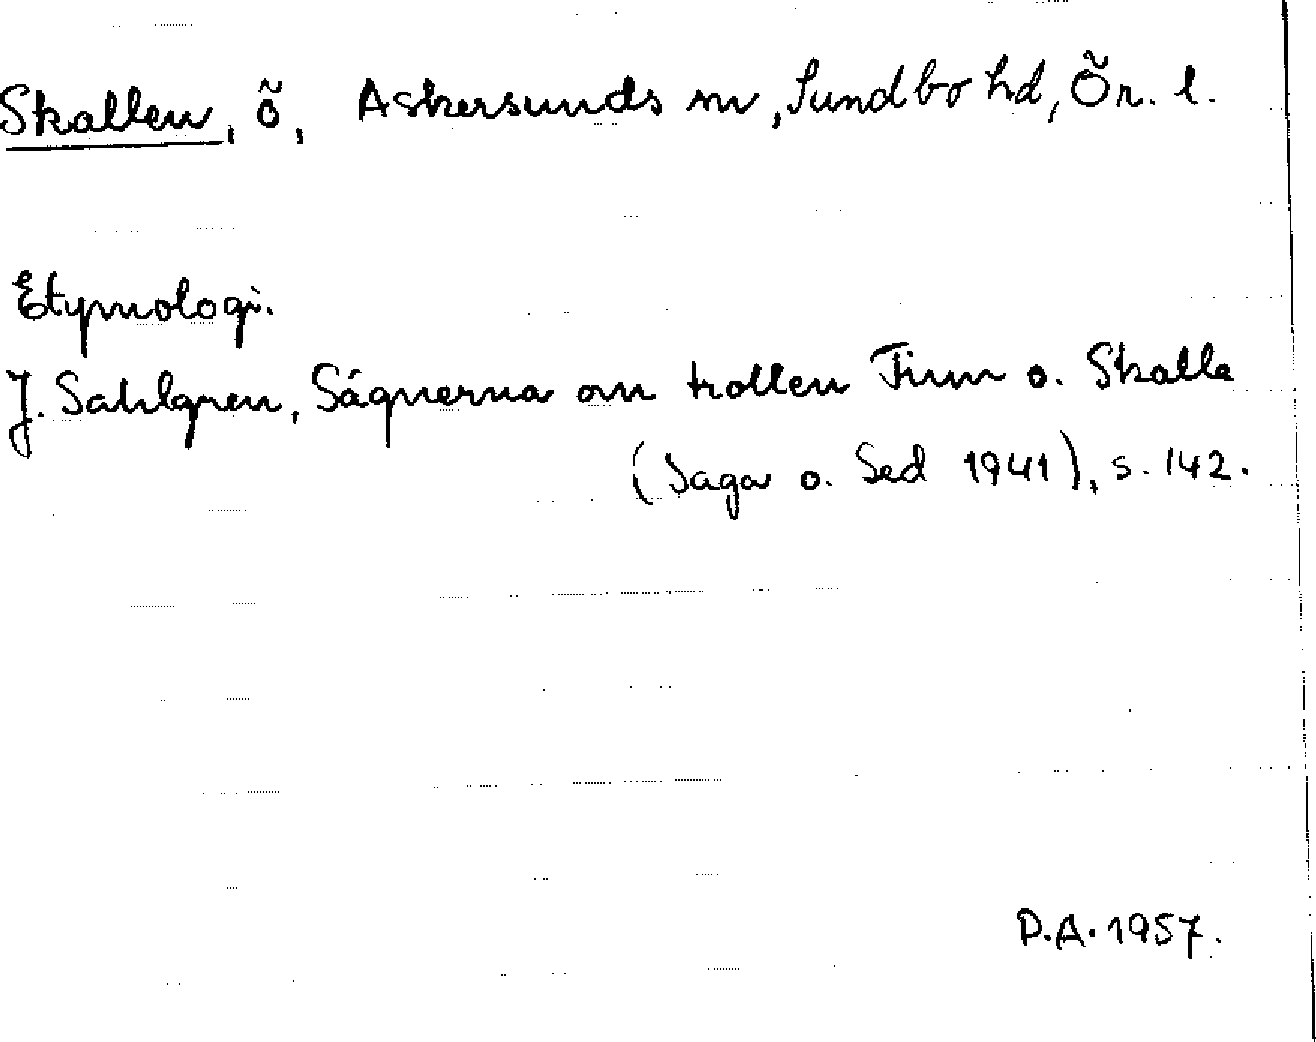 Skallen, ö, Askersunds sn, Sundbo hd, Ör. l.
Etymologi.
J. Sahlgren, Sägnerna om trollen Finn o. Skalle
(Saga o. Sed 1941), s. 142.
P.A. 1957.